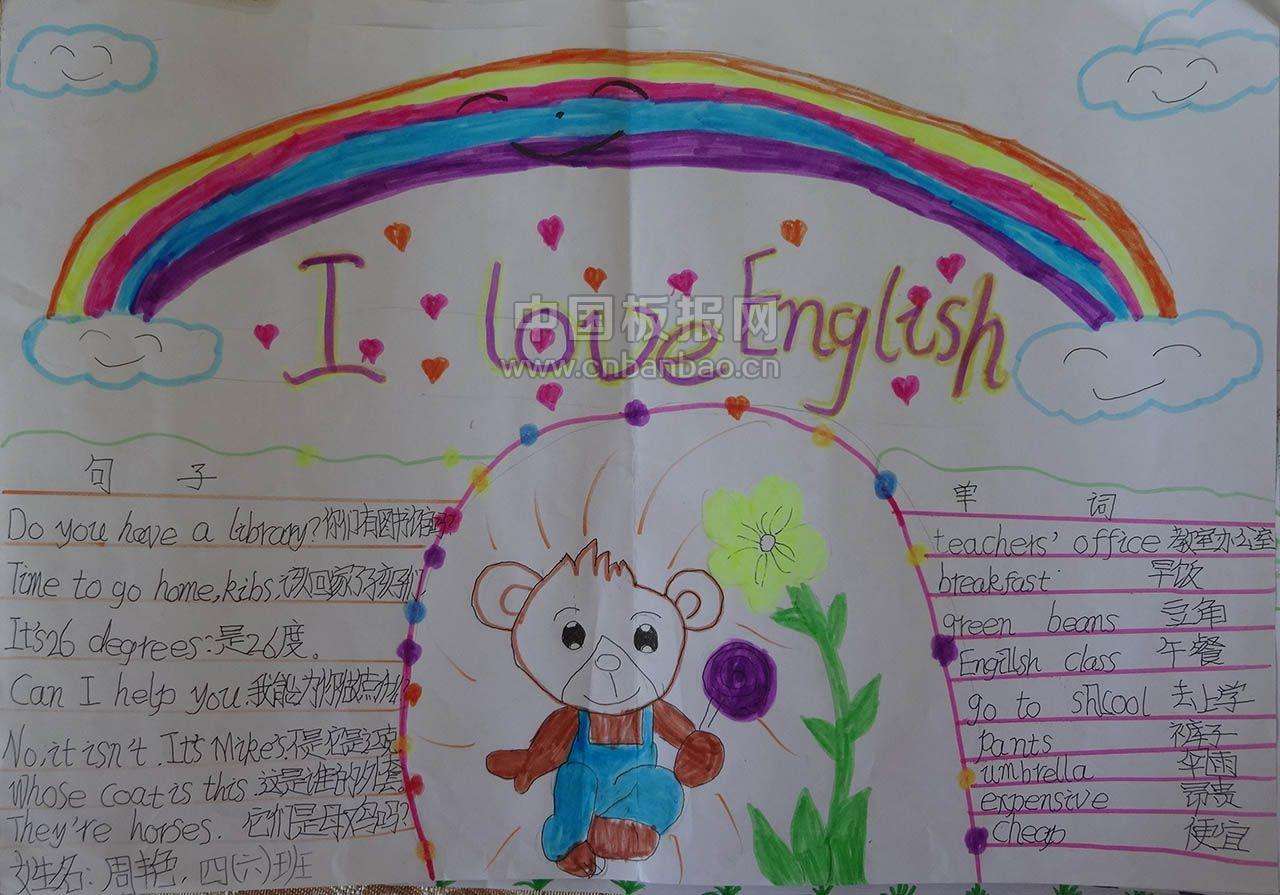 I love English
中国板报网
www.cnbanbao.cn
句子
Do you have a library? 你们有图书馆吗?
Time to go home, kibs. 该回家了孩子们
It's 26 degrees: 是26度.
Can I help you. 我能为你做点什
No, it isn't. It's Mike's. 不是它是
Whose coat is this. 这是谁的外套
They're horses. 它们是母
名: 周 四(六)班
单词
teachers' office 教室办公室
breakfast 早饭
green beans 豆角
Engillsh class 午餐
go to shlcool 去上学
pants 裤子
umbrella 伞雨
expensive 昂贵
cheap 便宜